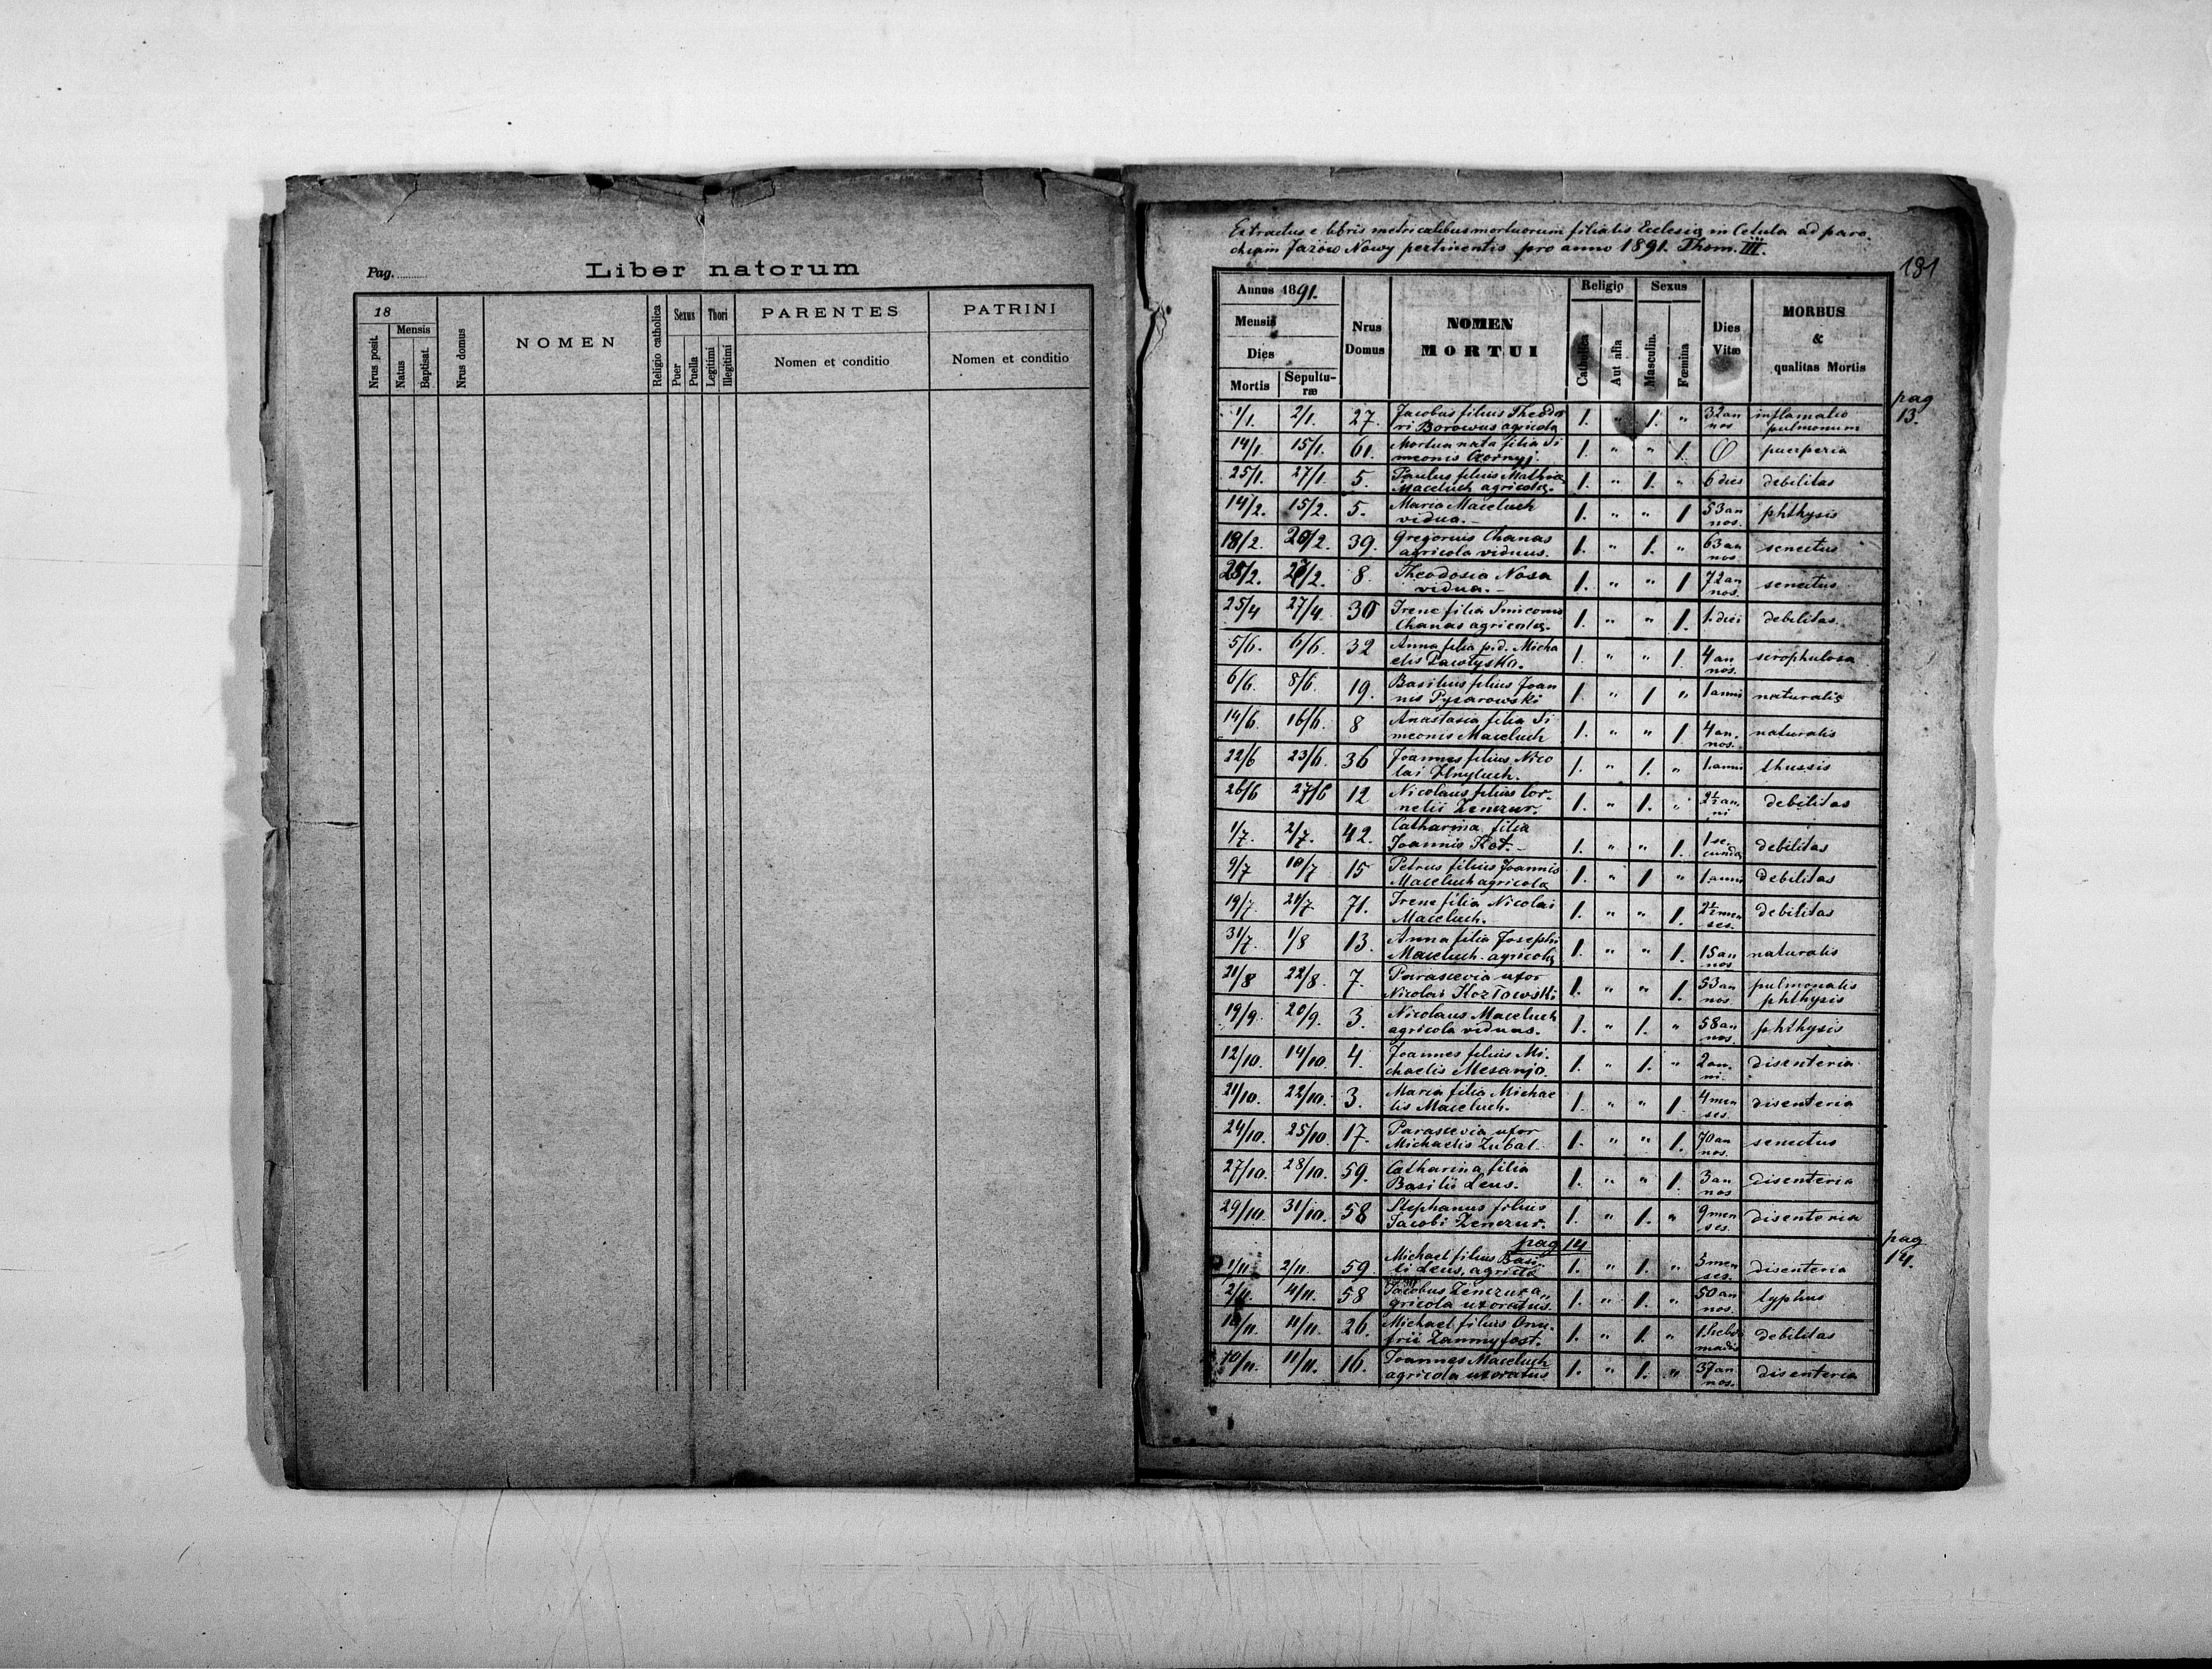 Pag.
Liber natorum
18
Mensis
Nrus posit.
Natus
Baptisat.
Nrus domus
NOMEN
Religio catholica
Sexus
Puer
Puella
Thori
Legitimi
Illegitimi
PARENTES
Nomen et conditio
PATRINI
Nomen et conditio
Extractus e libris metricalibus mortuorum filialis Ecclesiæ in Cetula ad paro-
chiam Jazów Nowy pertinentis pro anno 1891. Thom. III.
191
Annus 1891.
Mensis
Dies
Mortis
Sepultu-
ræ
Nrus
Domus
NOMEN
MORTUI
Religio
Catholica
Aut alia
Sexus
Masculin.
Fœmina
Dies
Vitæ
MORBUS
&
qualitas Mortis
pag
13.
1/1. 2/1. 27. Jacobus filius Theodo- 1. " 1. " 32 an inflamatio
ri Borowus agricola nos pulmonum
14/1. 15/1. 61. Mortua nata filia Si 1. " " 1. puerperia
meonis Czornyj.
25/1. 27/1. 5. Paulus filius Mathiæ 1. " 1. " 6 dies debilitas
Maceluch agricolæ.
14/2. 15/2. 5. Maria Maceluch 1. " " 1 53 an phthysis
vidua. nos.
18/2. 20/2. 39. Gregorius Chanas 1. " 1. " 63 an senectus
agricola viduus. nos
25/2. 27/2. 8. Theodosia Nosa 1. " " 1 72 an senectus
vidua. nos.
25/4 27/4. 30 Irene filia Simeonis 1. " " 1. 1. diei debilitas.
Chanas agricolæ.
5/6. 6/6. 32 Anna filia p.d. Micha 1. " " 1. 4 an scrophulosa
elis nos.
6/6. 8/6. 19. Basilius filius Joan 1. " 1 " 1 anni naturalis
nis Pysarowski
14/6. 16/6. 8 Anastasia filia Si 1. " " 1. 4 an. naturalis
meonis Maceluch nos.
22/6 23/6. 36 Joannes filius Nico 1. " 1. " 1. anni thussis
lai Hnyluch.
26/6 27/6 12 Nicolaus filius Cor- 1. " 1. " 2½ an. debilitas
nelii Zenczur. ni
1/7. 2/7. 42. Catharina filia 1. " " 1. 1 se debilitas
Joannis Kot. cundæ
9/7 10/7 15 Petrus filius Joannis 1. " 1 " 1. anni debilitas
Maceluch agricolæ
19/7. 21/7. 71. Irene filia Nicolai 1. " " 1. 2½ men debilitas
Maceluch. ses.
31/7. 1/8 13. Anna filia Josephi 1. " " 1. 15 an naturalis
Maceluch agricolæ nos
21/8 22/8. 7. Parascevia uxor 1. " " 1. 53 an pulmonalis
Nicolai Kozłowski nos. phthysis
19/9. 20/9. 3. Nicolaus Maceluch 1. " 1. " 58 an phthysis
agricola viduus. nos.
12/10. 14/10. 4. Joannes filius Mi- 1. " 1. " 2 an. disenteria
chaelis Mesanjo. ni.
21/10. 22/10. 3. Maria filia Michae 1. " " 1. 4 men disenteria
lis Maceluch. ses
24/10. 25/10. 17. Parascevia uxor 1. " " 1. 70 an senectus
Michaelis Zubal. nos.
27/10. 28/10. 59. Catharina filia 1. " " 1. 3 an disenteria
Basilii Leus. nos
29/10. 31/10. 58 Stephanus filius 1. " 1. " 9 men disenteria
Jacobi Zenczur. ses.
pag 14
pag
14.
1/11 2/11. 59. Michael filius Basi 1. " 1. " 3 men disenteria
li Leus, agricolæ ses.
2/11. 4/11. 58 Jacobus Zenczur a„ 1. " 1. " 50 an typhus
gricola uxoratus. nos.
10/11. 11/11. 26. Michael filius Onu- 1. " 1. " 1. hebdo debilitas
frii madis
10/11. 11/11. 16. Joannes Maceluch 1. " 1. " 37 an disenteria
agricola uxoratus nos.